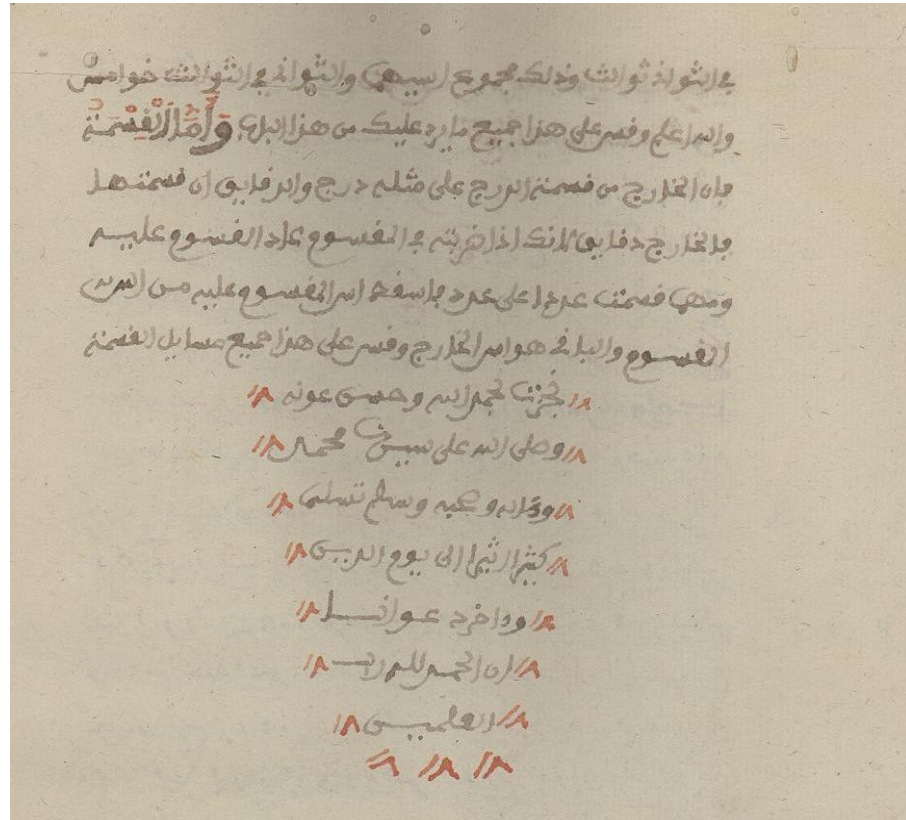 في الثواني ثوالث وذلك مجموع اسيهما والثواني في الثوالث خوامس
والله اعلم وقس على هذا جميع ما يرد عليك من هذا الباب وَأَمَّا الْقِسْمَة
فان الخارج من قسمة الدرج على مثله درج والدقايق ان قسمتها
فالخارج دقايق لانك اذا ضربته في المقسوم عليه
ومهما قسمت عددا على عدد فاسقط اس المقسوم عليه من اس
المقسوم والباقي هو اس الخارج وقس على هذا جميع مسايل القسمة
نجزت بحمد الله وحسن عونه
وصلى الله على سيدنا محمد
وءاله وصحبه وسلم تسليما
كثيرا اثيرا الى يوم الدين
وءاخر دعوانا
ان الحمد لله رب
العلمين